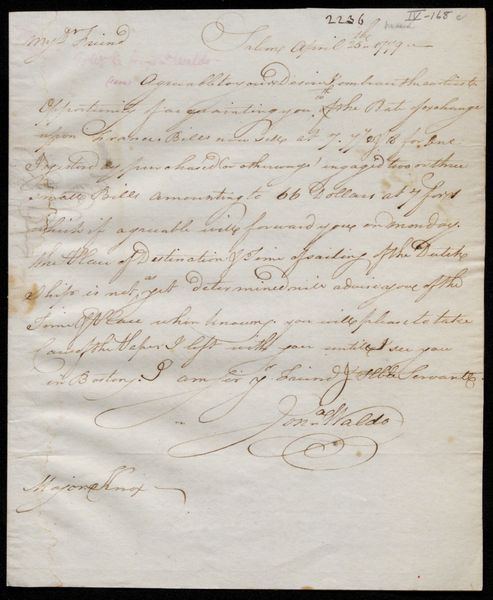 2236 IV-168
My Dr. Friend Salem April 26th 1779
Agreeable to your Desire I embrace the earliest
Oppertunity of acquainting you that the Rate of exchange
upon France Bills now sells at 7. 7½ & 8 for One
I yesterday purchased or otherways engaged two or three
small Bills amounting to 66 Dollars at 7 for 1
which if agreable will forward you on Monday.
the Place of Destination & Time of sailing of the Dutch
Ship is not as yet determined will advise you of the
Time & Place when known, you will please to take
Care of the I left with you untill I see you
in Boston. I am Sir yr. Friend & Hble Servant
Jona. Waldo
Major Knox